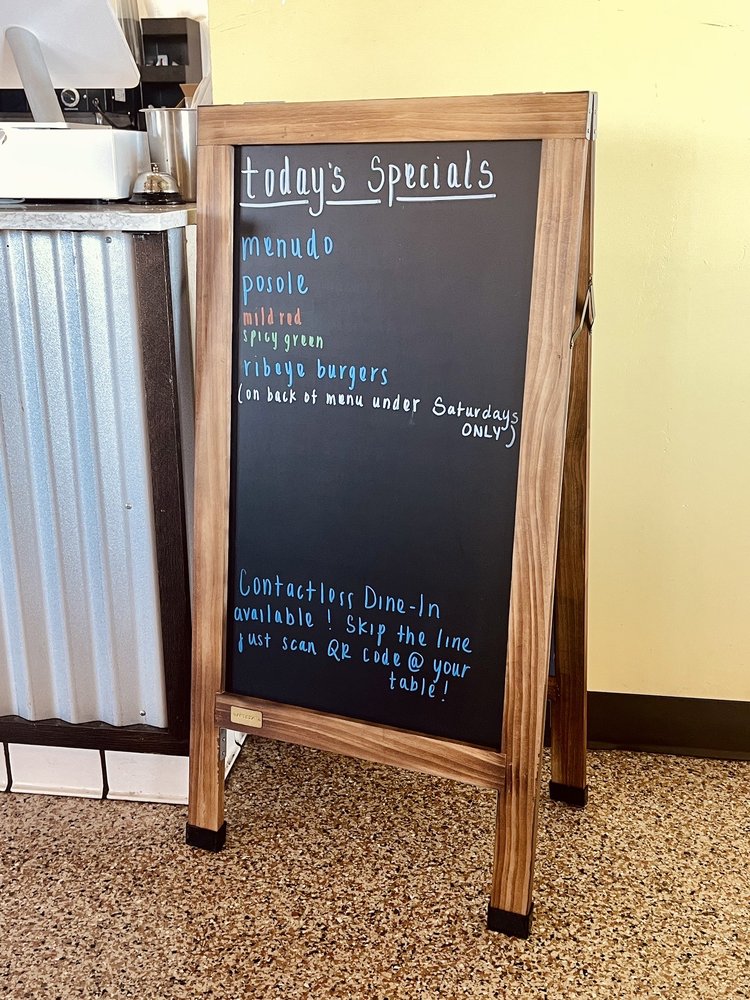 today's Specials
menudo
posole
mild red
spicy green
ribeye burgers
(on back of menu under Saturdays
ONLY)
Contactless Dine-In
available! Skip the line
just scan QR code @ your
table!